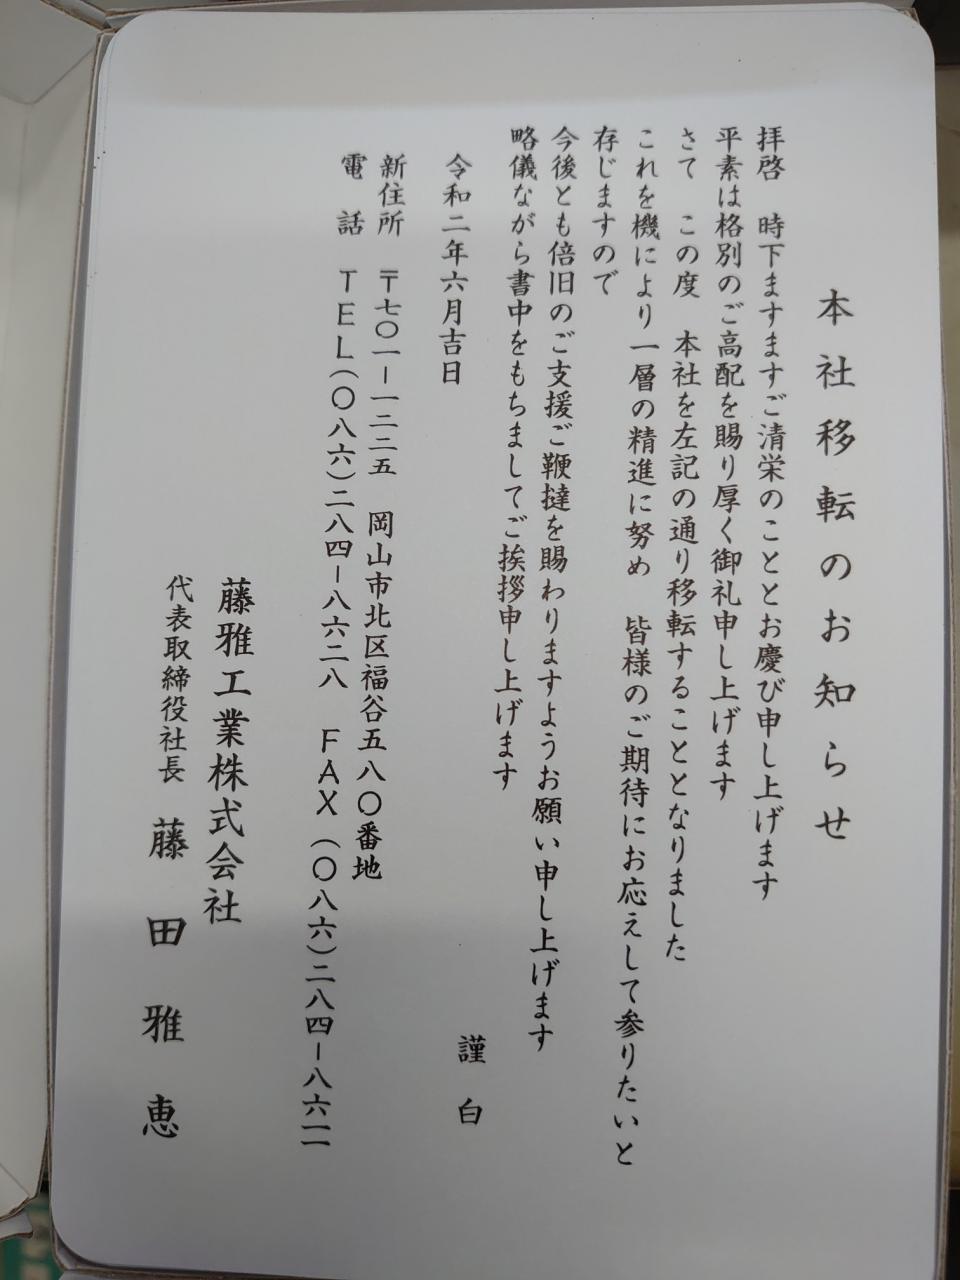 本社移転のお知らせ
拝啓　時下ますますご清栄のこととお慶び申し上げます
平素は格別のご高配を賜り厚く御礼申し上げます
さて　この度　本社を左記の通り移転することとなりました
これを機により一層の精進に努め　皆様のご期待にお応えして参りたいと
存じますので
今後とも倍旧のご支援ご鞭撻を賜わりますようお願い申し上げます
略儀ながら書中をもちましてご挨拶申し上げます
謹白
令和二年六月吉日
新住所　〒七〇一－一二二五　岡山市北区福谷五八〇番地
電　話　ＴＥＬ（〇八六）二八四－八六二八　ＦＡＸ（〇八六）二八四－八六一一
藤雅工業株式会社
代表取締役社長　藤田雅恵